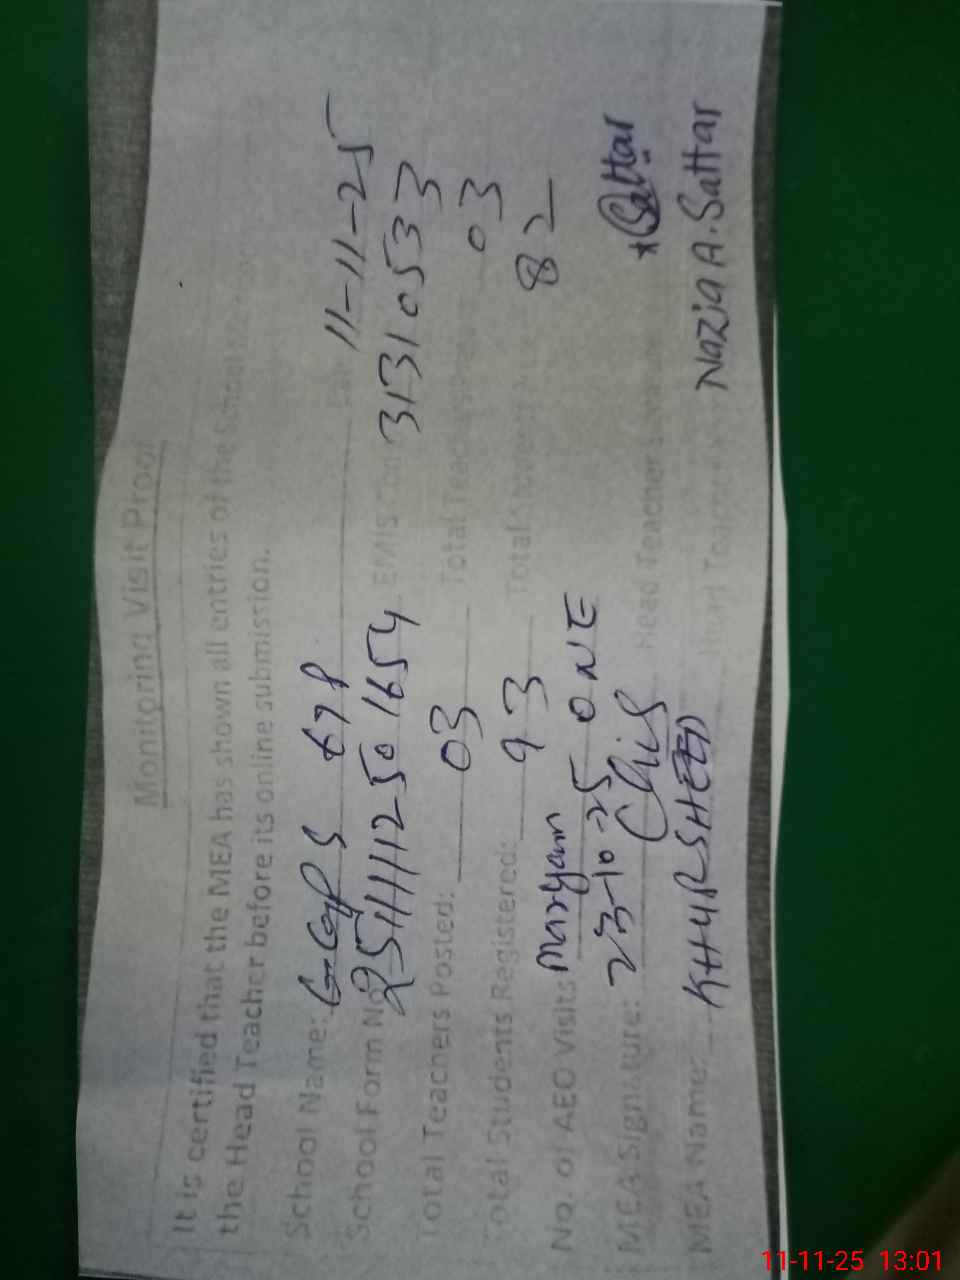 Monitoring Visit Proof
It is certified that the MEA has shown all entries of the School
the Head Teacher before its online submission.
School Name: GGPS 678 11-11-25
School Form No 2511111250 1654 EMIS 31310533
Total Teachers Posted: 03 Total Teachers 03
Total Students Registered: 93 Total 82
No. of AEO Visits Maryam 23-10-25 ONE
MEA Signature: Head Teacher Sattar
MEA Name: KHURSHEED Head Teacher Nazia A. Sattar
11-11-25 13:01